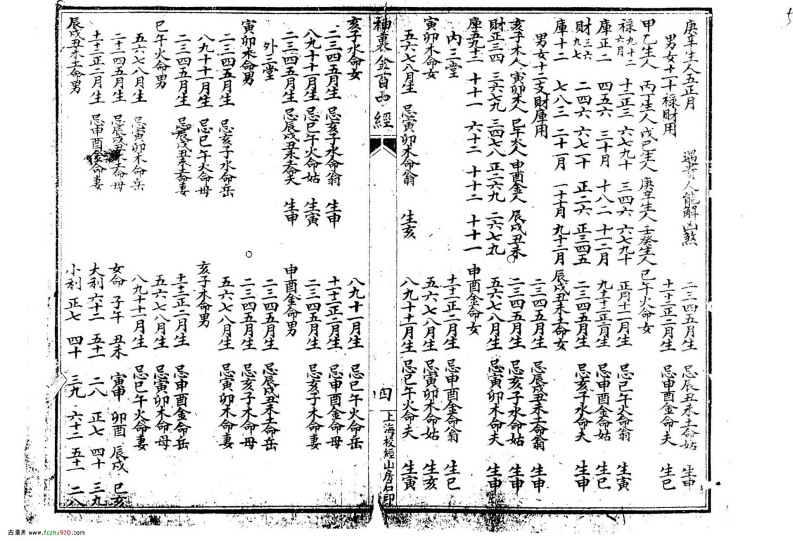 庚辛生人五正月
男女十干祿財用 遇貴人能解凶煞
甲乙生人 丙丁生人 戊己生人 庚辛生人 壬癸生人
祿九十二六月 十二正三 六七九十 三四六 六七九十
庫正二 四五六 三十月 十八二 十二二月
財三六九九 二四六 六七十 正二六 正三四五
庫十二 七八三 二十一月 一十月 九十二月
男女十二支財庫用
亥子水人 寅卯木人 巳午火人 申酉金人 辰戌丑未
財正三四 三六七九 三四七八 正二六九 二六七九
庫五九十二 十十一 六十二 十十二 十十一
內三堂
寅卯木命女
五六七八月生 忌寅卯木命翁 生亥
二三四五月生 忌辰戌丑未土命姑 生申
十十二正二月生 忌申酉金命夫 生巳
巳午火命女
正月十二月生 忌巳午火命翁 生寅
九十十二正二月生 忌申酉金命姑 生巳
二三四五月生 忌亥子水命夫 生申
辰戌丑未土命女
二三四五月生 忌辰戌丑未土命翁 生申
二三四五月生 忌亥子水命姑 生申
五六七八月生 忌寅卯木命夫 生申
申酉金命女
十十二正二月生 忌申酉金命翁 生巳
五六七八月生 忌寅卯木命姑 生亥
八九十十一月生 忌巳午火命夫 生寅
袖裏金百中經
四
上海校經山房石印
亥子水命女
二三四五月生 忌亥子水命翁 生申
八九十十一月生 忌巳午火命姑 生寅
二三四五月生 忌辰戌丑未土命夫 生申
外三堂
寅卯木命男
二三四五月生 忌亥子水命岳
八九十十一月生 忌巳午火命母
二三四五月生 忌辰戌丑未土命妻
巳午火命男
五六七八月生 忌寅卯木命岳
二三四五月生 忌辰戌丑未土命母
十十二正二月生 忌申酉金命妻
辰戌丑未土命男
八九十十一月生 忌巳午火命岳
十十二正二月生 忌申酉金命母
二三四五月生 忌亥子水命妻
申酉金命男
二三四五月生 忌辰戌丑未土命岳
二三四五月生 忌亥子水命母
五六七八月生 忌寅卯木命妻
亥子水命男
十十二正二月生 忌申酉金命岳
五六七八月生 忌寅卯木命母
八九十十一月生 忌巳午火命妻
女命 子午 丑未 寅申 卯酉 辰戌 巳亥
大利 六十二 五十一 二八 正七 四十 三九
小利 正七 四十 三九 六十二 五十一 二八
古漢庫 www.fczhu920.com